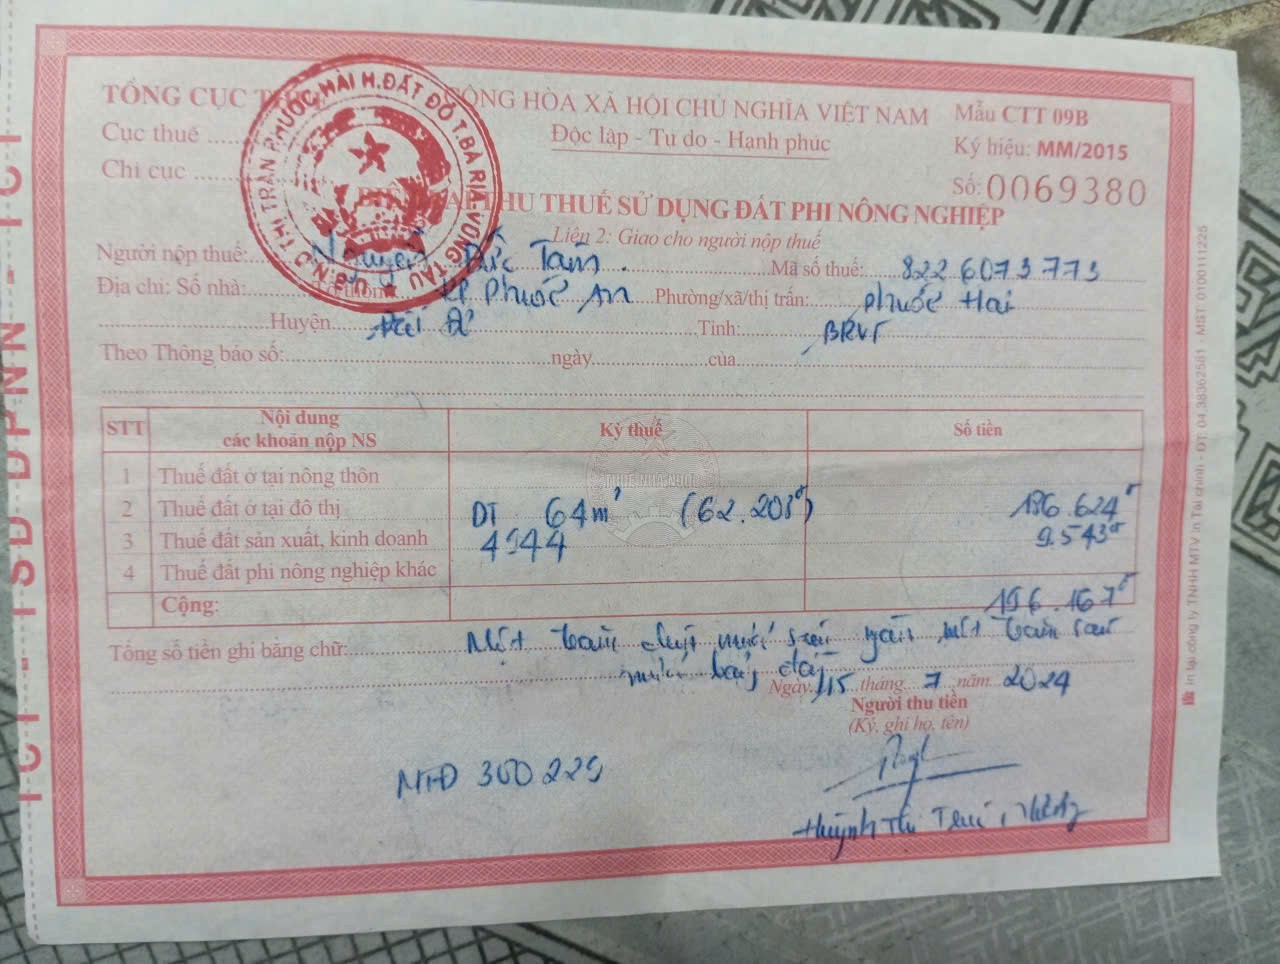 TỔNG CỤC T
CỘNG HÒA XÃ HỘI CHỦ NGHĨA VIỆT NAM
Mẫu CTT 09B
Cục thuế
Độc lập - Tự do - Hạnh phúc
Ký hiệu: MM/2015
Chi cục
Số: 0069380
U.B.N.D THỊ TRẤN PHƯỚC HẢI H.ĐẤT ĐỎ T.BÀ RỊA-VŨNG TÀU
BIÊN LAI THU THUẾ SỬ DỤNG ĐẤT PHI NÔNG NGHIỆP
Liên 2: Giao cho người nộp thuế
Người nộp thuế: Nguyễn Đức Tâm. Mã số thuế: 8226073773
Địa chỉ: Số nhà: Tổ/thôn: KP Phước An Phường/xã/thị trấn: Phước Hải
Huyện Đất Đỏ Tỉnh: BRVT
Theo Thông báo số: ngày của
STT Nội dung các khoản nộp NS Kỳ thuế Số tiền
THUẾ NHÀ NƯỚC
1 Thuế đất ở tại nông thôn
2 Thuế đất ở tại đô thị DT 64m² (62.208đ) 186.624đ
3 Thuế đất sản xuất, kinh doanh 4944 9.543đ
4 Thuế đất phi nông nghiệp khác
Cộng: 196.167đ
Tổng số tiền ghi bằng chữ: Một trăm chín mươi sáu ngàn, một trăm sáu
mươi bảy đồng
Ngày 15 tháng 7 năm 2024
Người thu tiền
(Ký, ghi họ, tên)
MHĐ 300229
Huỳnh Thị
TCT - TSD ĐPNN - TCT
In tại công ty TNHH MTV in Tài chính - ĐT: 04.38362581 - MST: 0100111225